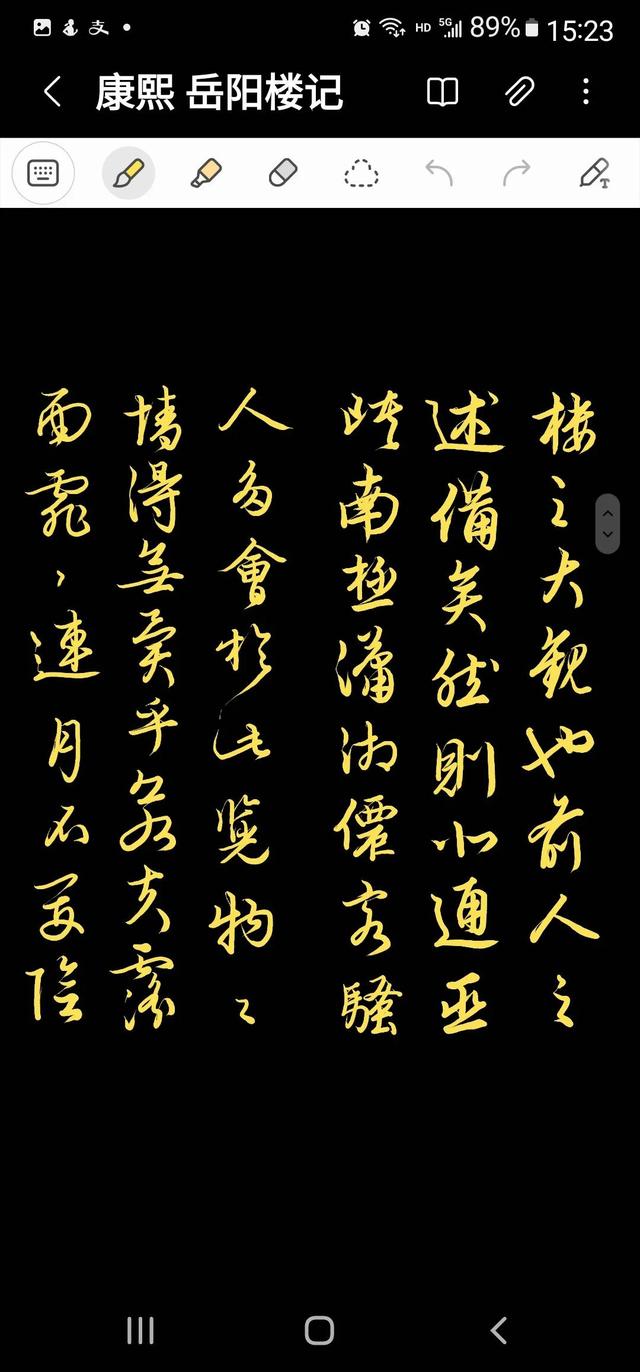 支 HD 5G 89% 15:23
康熙 岳阳楼记
T
楼之大觀也前人之
述備矣然則北通巫
峽南極瀟湘僊客騷
人多會於此覽物之
情得無異乎若夫霪
雨霏々連月不開陰